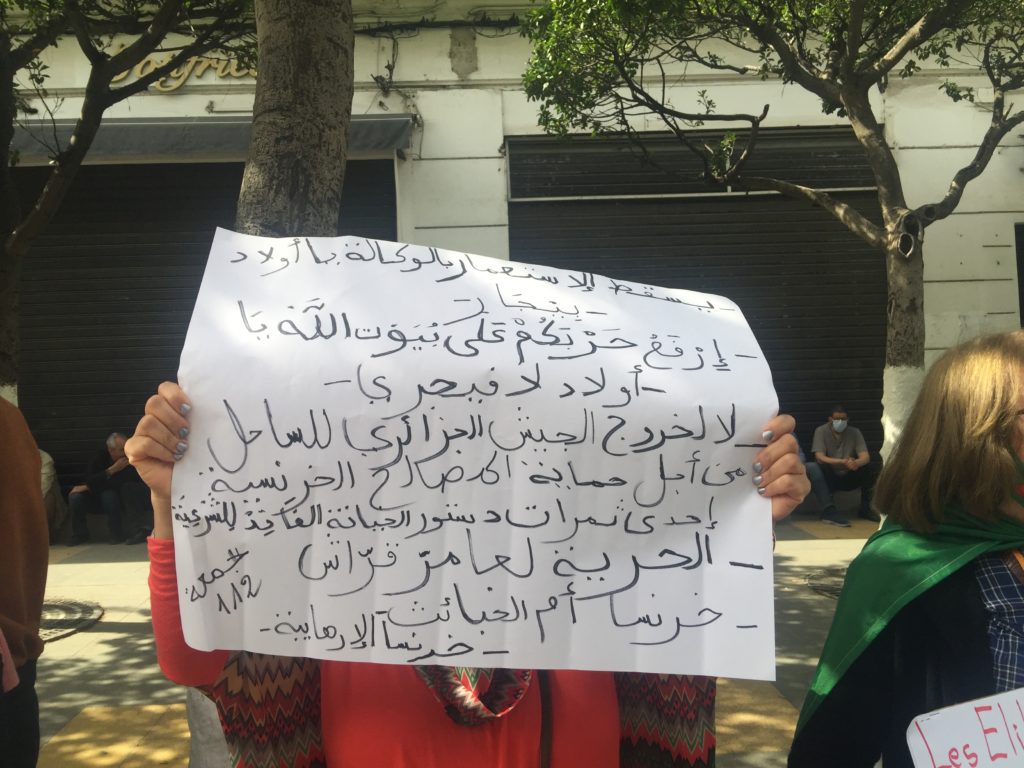 يسقط الإستعمار بالوكالة يا أولاد
بيجار
- إرفعُ حَرْبَكُمْ عَلى بُيُوت اللَّه يَا
- أولاد لافيجري -
- لا لخروج الجيش الجزائري للساحل
من أجل حماية المصالح الخرنسية
إحدى ثمرات دستور الخيانة الفاقد للشرعية
- الحرية لعامر ڤرّاش
جمعة
112
- خرنسا أم الخبائث
- خرنسا الإرهابية -
Les Eli